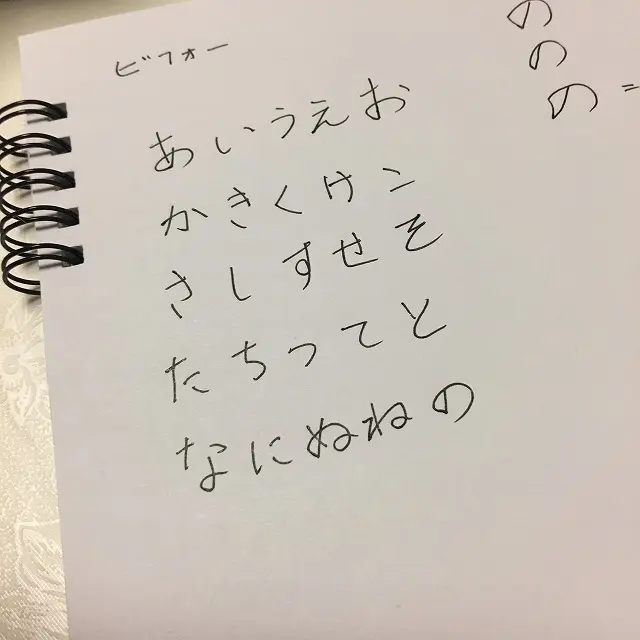 ビフォー
あいうえお
かきくけこ
さしすせそ
たちつてと
なにぬねの
の
の
の=